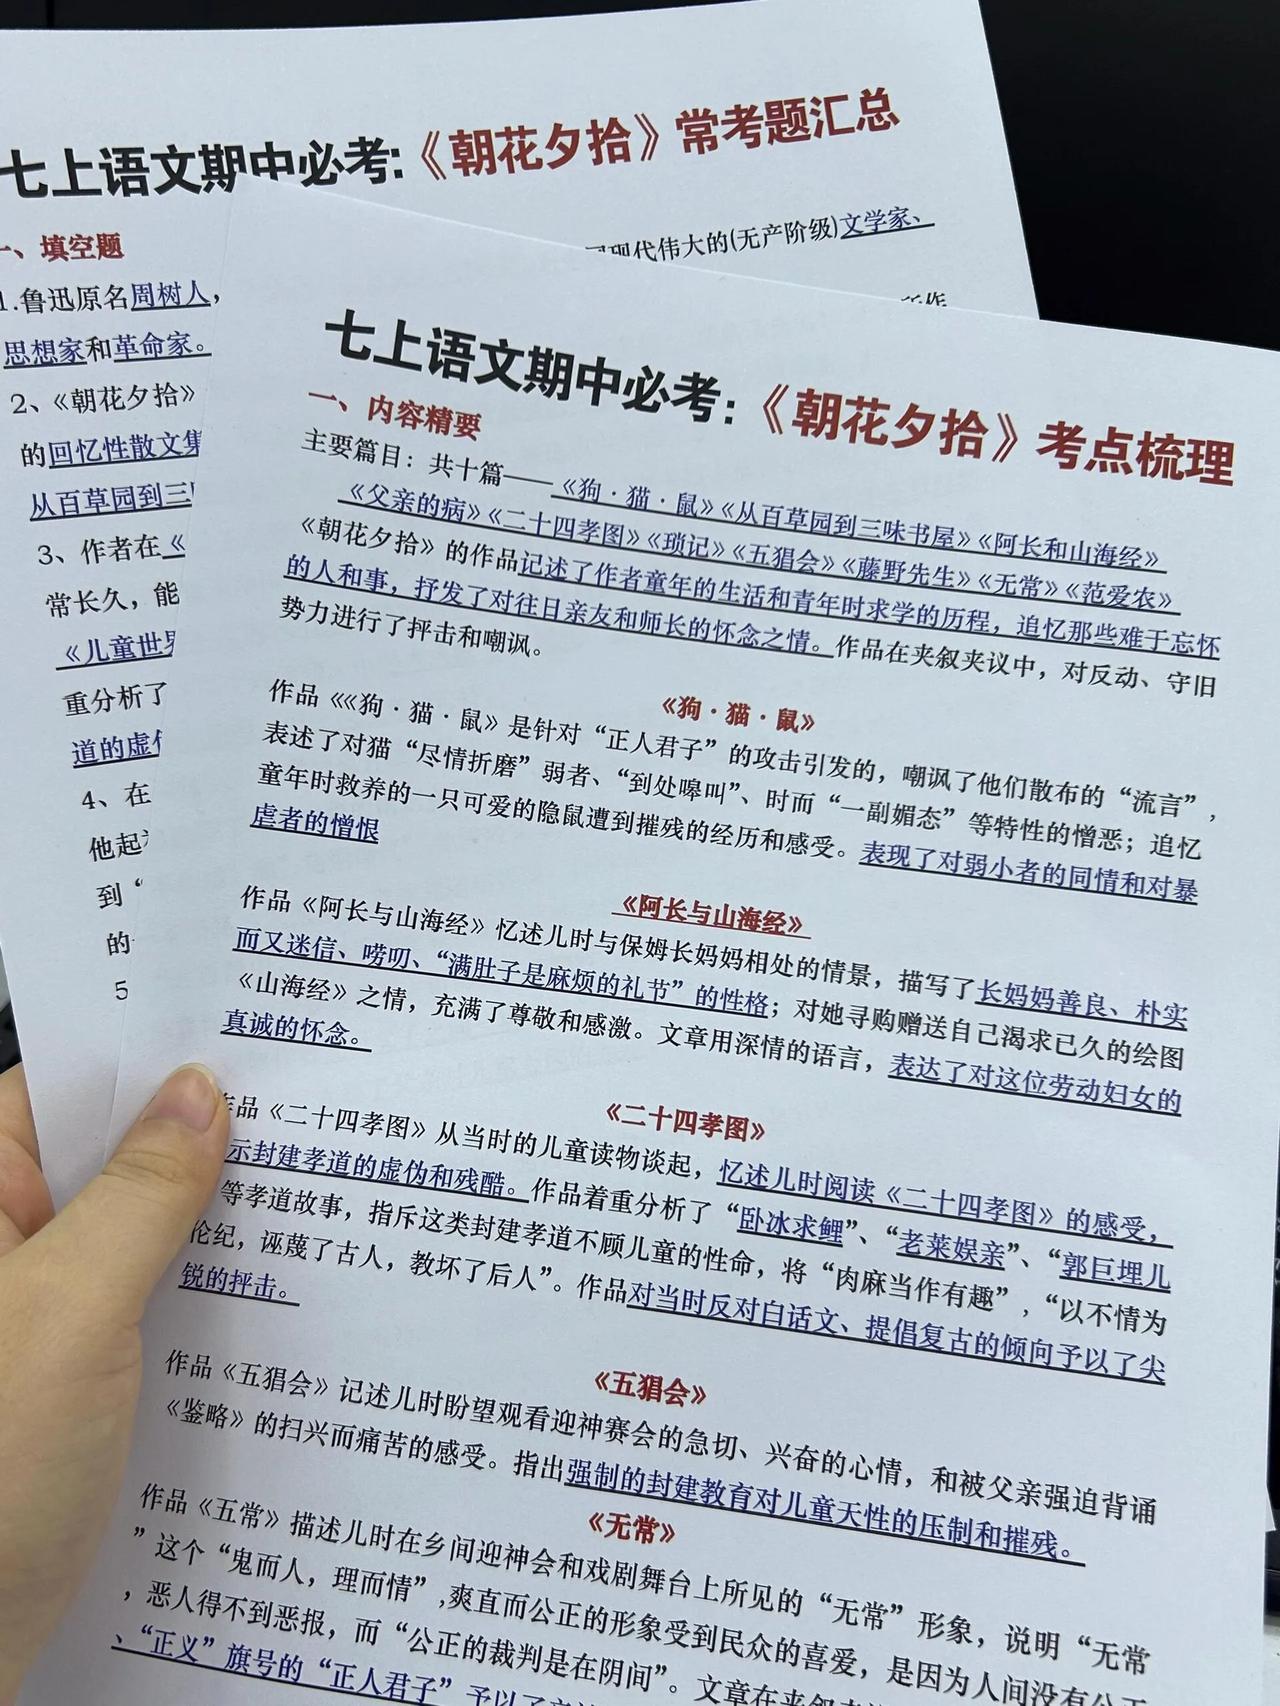 七上语文期中必考:《朝花夕拾》常考题汇总
一、填空题
1.鲁迅原名周树人,
现代伟大的(无产阶级)文学家、
思想家和革命家。
2、《朝花夕拾》
的回忆性散文集
从百草园到三
3、作者在《
常长久,能
《儿童世界
重分析了
道的虚伪
4、在
他起
到“
的
5
七上语文期中必考:《朝花夕拾》考点梳理
一、内容精要
主要篇目:共十篇——《狗·猫·鼠》《从百草园到三味书屋》《阿长和山海经》
《父亲的病》《二十四孝图》《琐记》《五猖会》《藤野先生》《无常》《范爱农》
《朝花夕拾》的作品记述了作者童年的生活和青年时求学的历程,追忆那些难于忘怀
的人和事,抒发了对往日亲友和师长的怀念之情。作品在夹叙夹议中,对反动、守旧
势力进行了抨击和嘲讽。
《狗·猫·鼠》
作品《《狗·猫·鼠》是针对“正人君子”的攻击引发的,嘲讽了他们散布的“流言”,
表述了对猫“尽情折磨”弱者、“到处嗥叫”、时而“一副媚态”等特性的憎恶;追忆
童年时救养的一只可爱的隐鼠遭到摧残的经历和感受。表现了对弱小者的同情和对暴
虐者的憎恨
《阿长与山海经》
作品《阿长与山海经》忆述儿时与保姆长妈妈相处的情景,描写了长妈妈善良、朴实
而又迷信、唠叨、“满肚子是麻烦的礼节”的性格;对她寻购赠送自己渴求已久的绘图
《山海经》之情,充满了尊敬和感激。文章用深情的语言,表达了对这位劳动妇女的
真诚的怀念。
《二十四孝图》
作品《二十四孝图》从当时的儿童读物谈起,忆述儿时阅读《二十四孝图》的感受,
示封建孝道的虚伪和残酷。作品着重分析了“卧冰求鲤”、“老莱娱亲”、“郭巨埋儿
等孝道故事,指斥这类封建孝道不顾儿童的性命,将“肉麻当作有趣”,“以不情为
伦纪,诬蔑了古人,教坏了后人”。作品对当时反对白话文、提倡复古的倾向予以了尖
锐的抨击。
《五猖会》
作品《五猖会》记述儿时盼望观看迎神赛会的急切、兴奋的心情,和被父亲强迫背诵
《鉴略》的扫兴而痛苦的感受。指出强制的封建教育对儿童天性的压制和摧残。
《无常》
作品《五常》描述儿时在乡间迎神会和戏剧舞台上所见的“无常”形象,说明“无常
”这个“鬼而人,理而情”,爽直而公正的形象受到民众的喜爱,是因为人间没有公正
,恶人得不到恶报,而“公正的裁判是在阴间”。文章在夹叙
、“正义”旗号的“正人君子”予以了